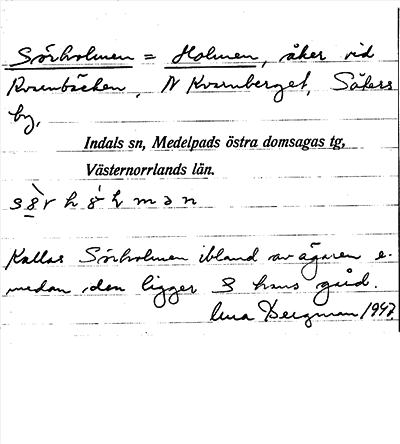 Sörholmen = Holmen, åker vid
Kvarnbäcken, N Kvarnberget, Säters
by,
Indals sn, Medelpads östra domsagas tg,
Västernorrlands län.
Kallas Sörholmen ibland av ägaren e-
medan den ligger S hans gård.
Bergman 1947.